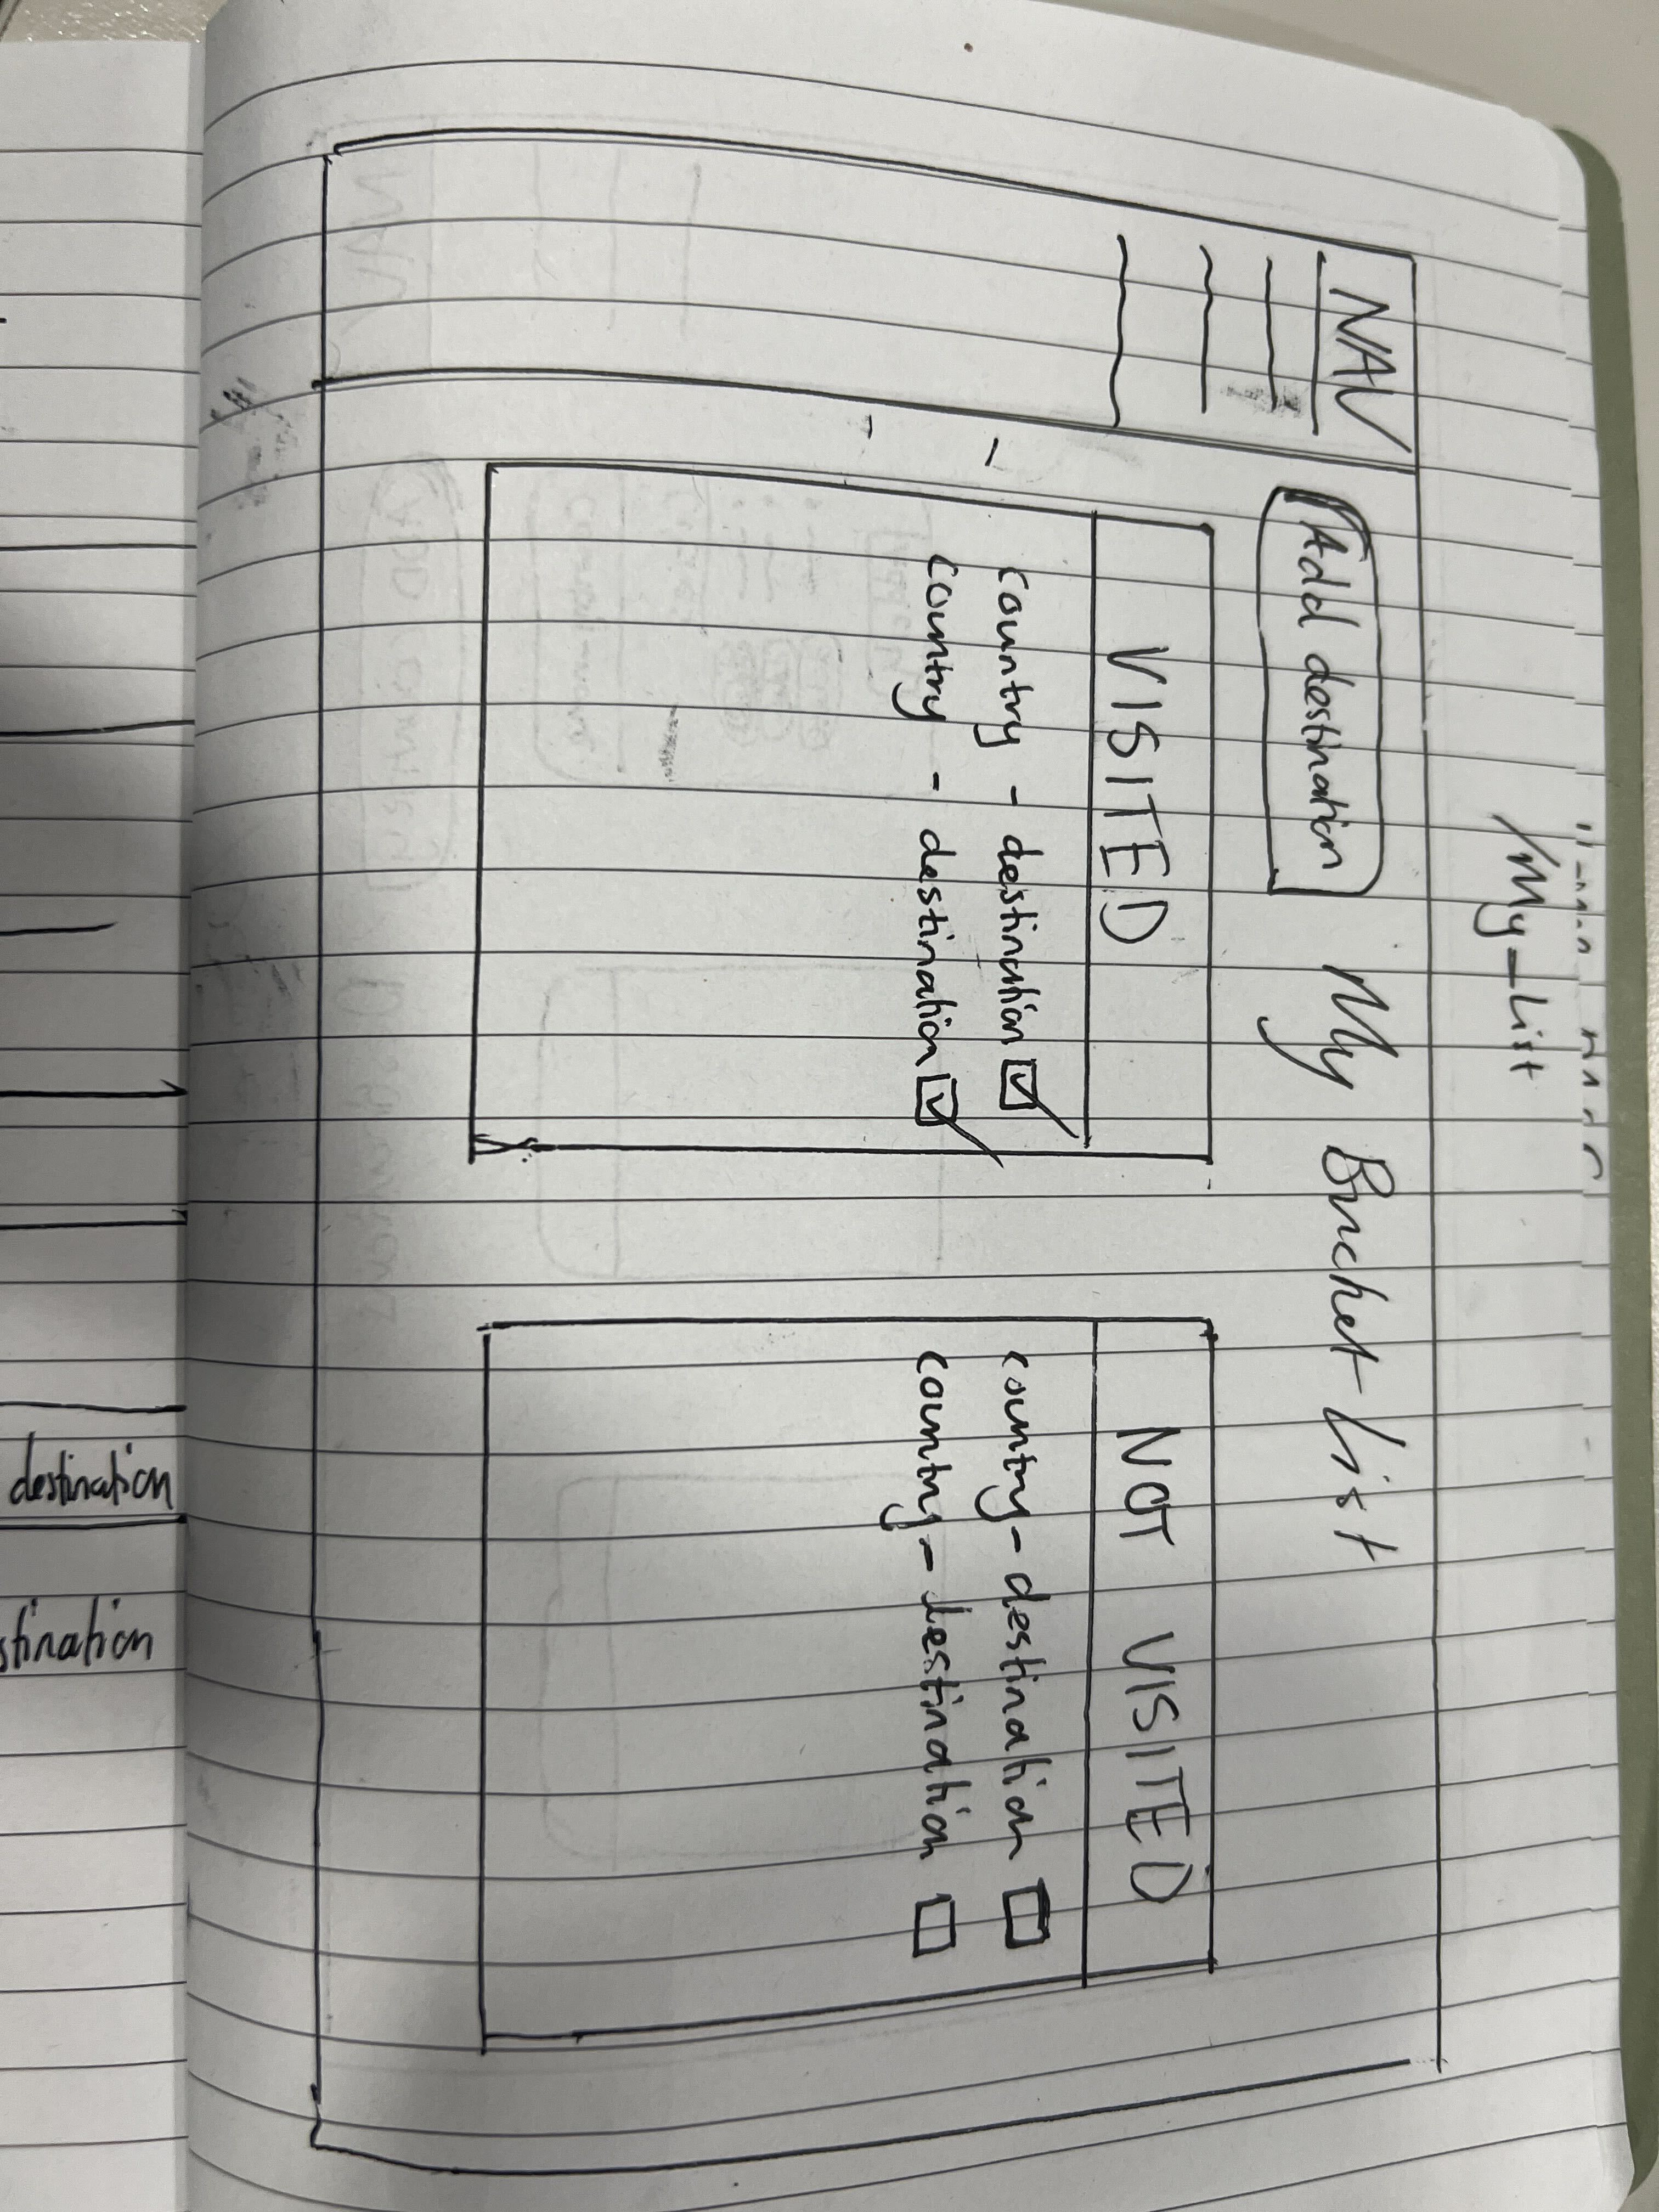 /My_List
NAV
Add destination
My Bucket List
VISITED
country - destination
country - destination
NOT VISITED
country - destination
country - destination
destination
stination